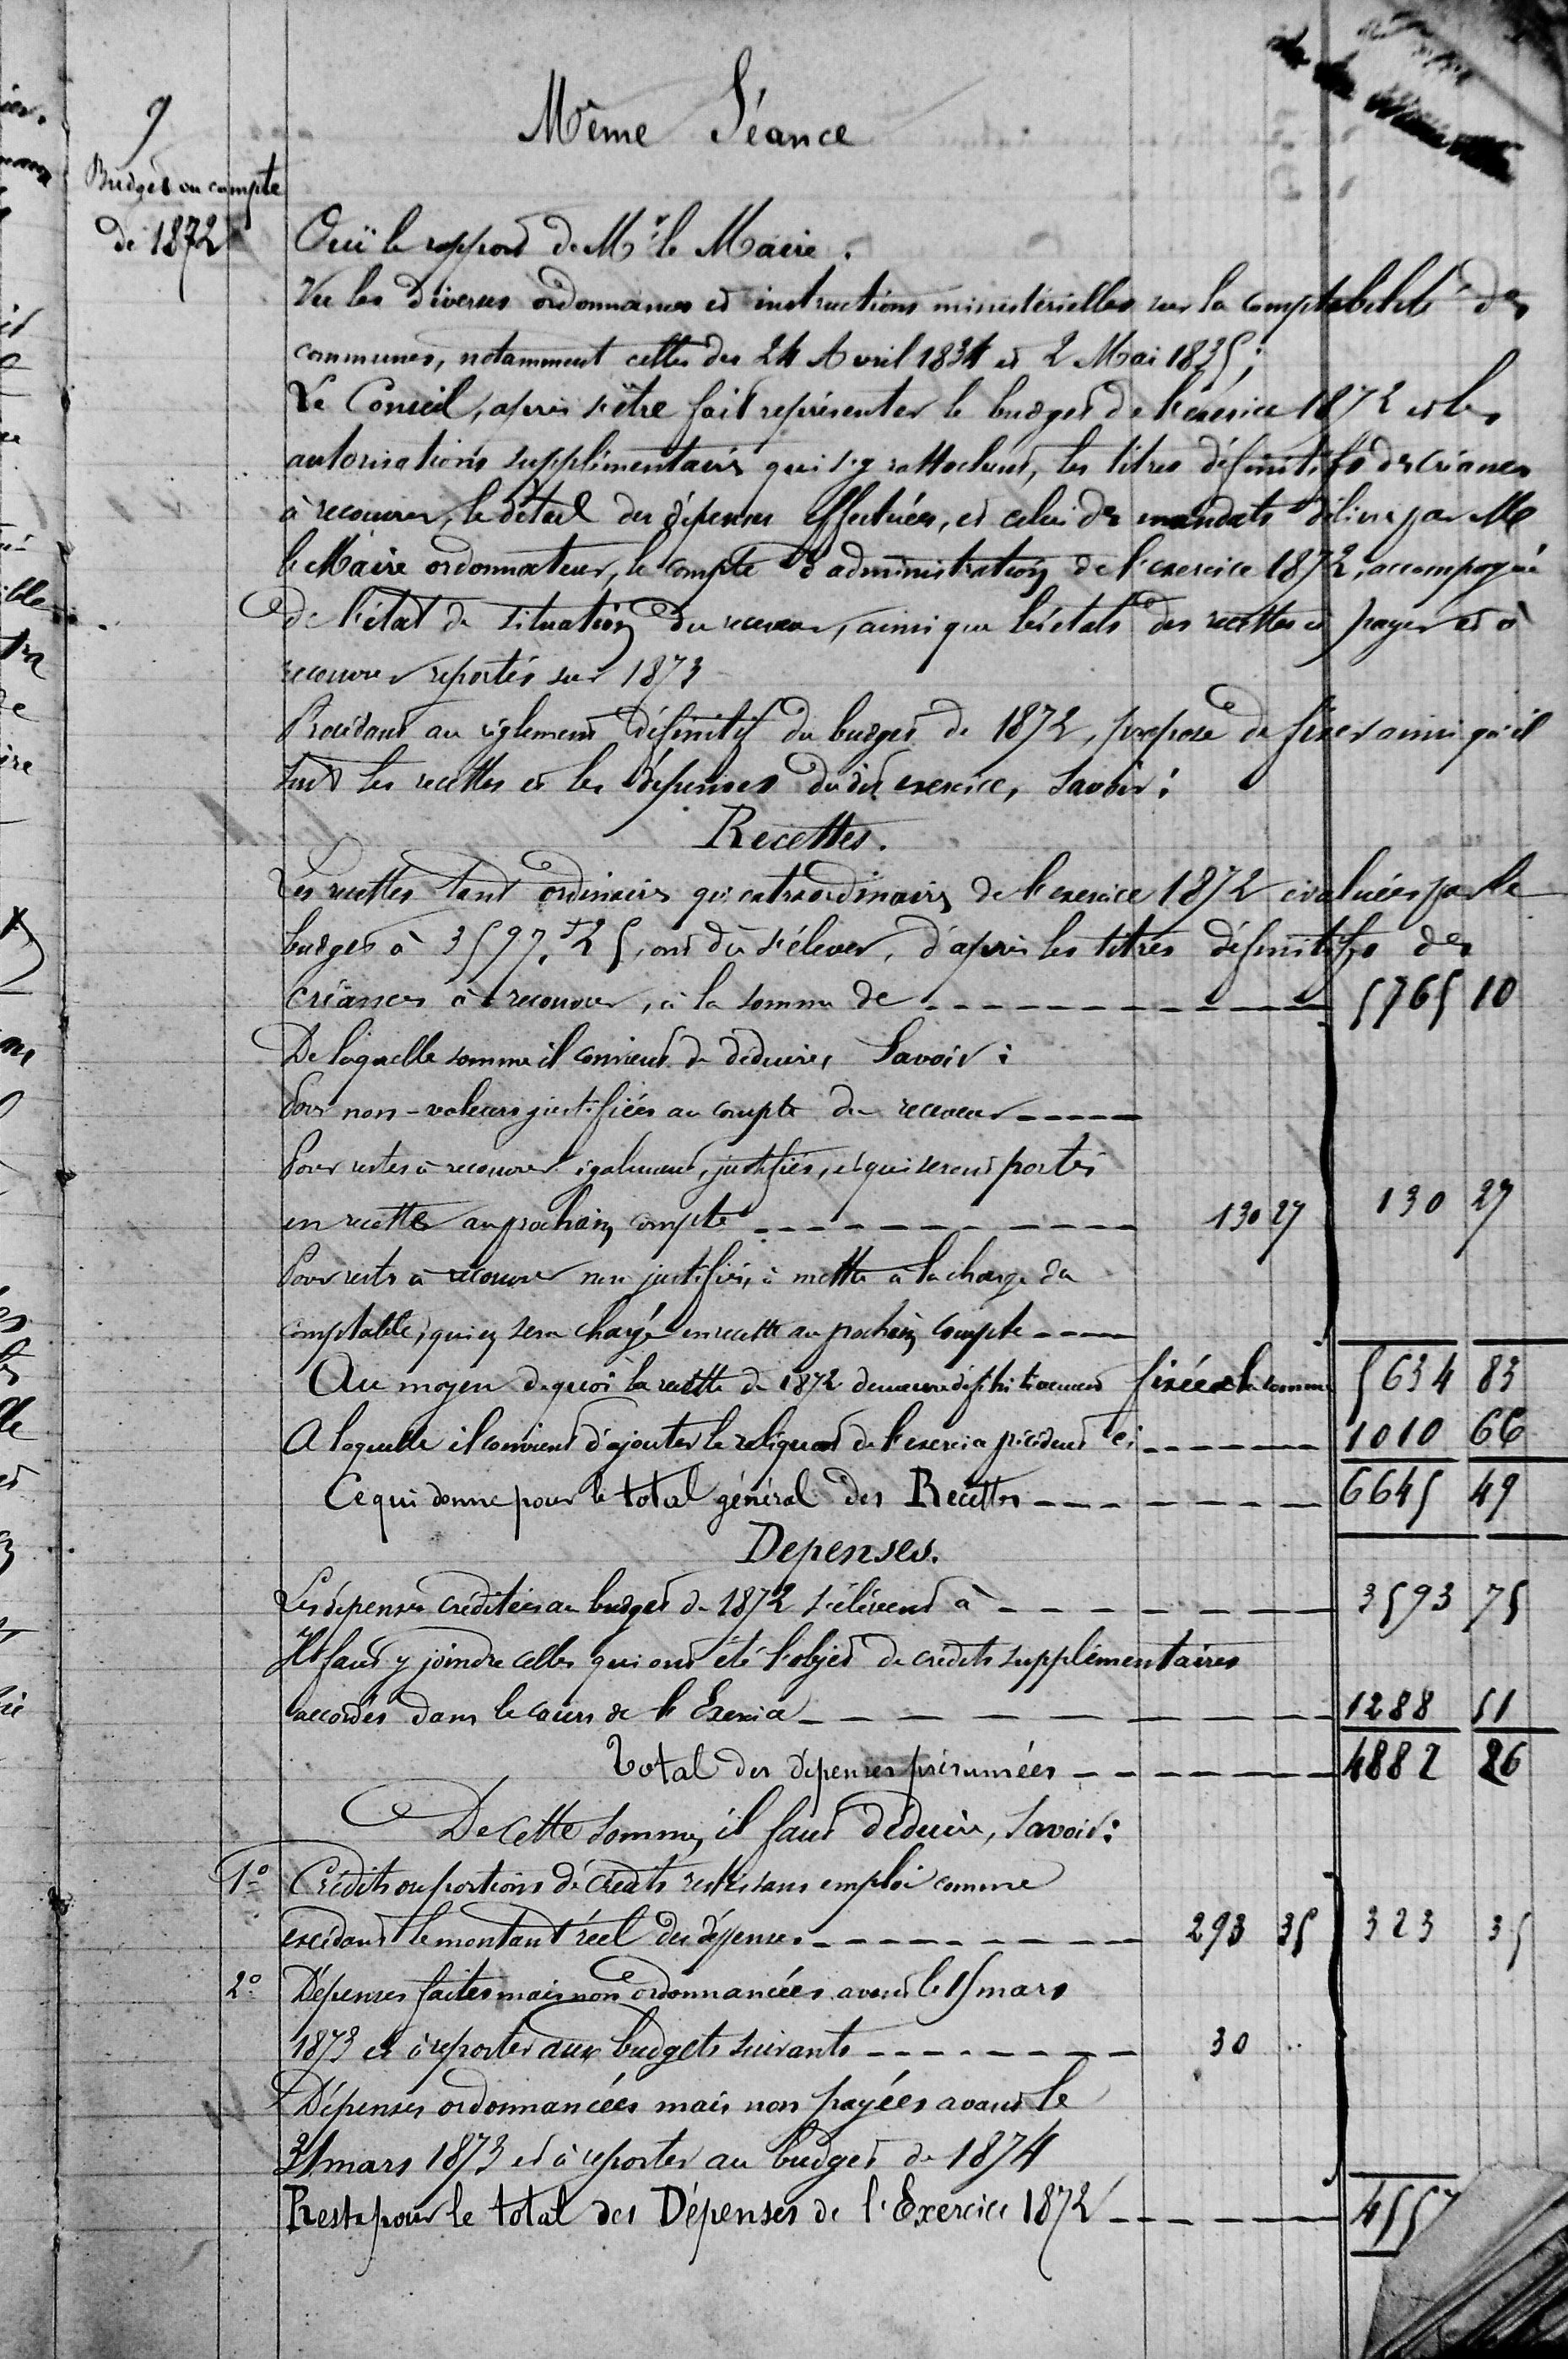 Même Séance
9
Budget ou compte
de 1872
Ouï le rapport de Mr. le Maire.
Vu les diverses ordonnances et instructions ministérielles sur la comptabilité des
communes, notamment celles des 24 Avril 1834 et 2 Mai 1835;
Le Conseil, après s'être fait représenter le budget de l'exercice 1872 et les
autorisations supplémentaires qui s'y rattachent, les titres définitifs des créances
à recouvrer, le détail des dépenses effectuées, et celui des mandats délivré par Mr
le Maire ordonnateur, le compte d'administration de l'exercice 1872, accompagné
de l'état de situation du receveur, ainsi que les états des recettes à payer et à
recouvrer reportés sur 1873
Procédant au règlement définitif du budget de 1872, propose de fixer ainsi qu'il
suit les recettes et les dépenses du dit exercice, savoir:
Recettes.
Les recettes tant ordinaires qu'extraordinaires de l'exercice 1872 évaluées par le
budget à 3597. f 25, ont dû s'élever, d'après les titres définitifs des
créances à recouvrer, à la somme de 5765 10
De laquelle somme il convient de déduire, Savoir:
Pour non-valeurs justifiées au compte du receveur
Pour restes à recouvrer également, justifiés, et qui seront portés
en recette au prochain compte 130 27 130 27
Pour restes à recouvrer non justifiés, à mettre à la charge du
comptable, qui en sera chargé en recette au prochain compte
Au moyen de quoi la recette de 1872 demeure définitivement fixée à la somme 5634 83
A laquelle il convient d'ajouter le reliquat de l'exercice précédent ci 1010 66
Ce qui donne pour le total général des Recettes 6645 49
Depenses.
Les dépenses créditées au budget de 1872 s'élèvent à 3593 75
Il faut y joindre celles qui ont été l'objet de crédits supplémentaires
accordés dans le cours de l'Exercice 1288 51
Total des dépenses présumées 4882 26
De cette somme, il faut déduire, savoir:
1° Crédits ou portions de crédits restés sans emploi comme
excédant le montant réel des dépenses 293 35 323 35
2° Dépenses faites mais non ordonnancées avant le 15 mars
1873 et à reporter aux budgets suivants 30 ..
Dépenses ordonnancées mais non payées avant le
31 mars 1873 et à reporter au budget de 1874
Reste pour le total des Dépenses de l'Exercice 1872